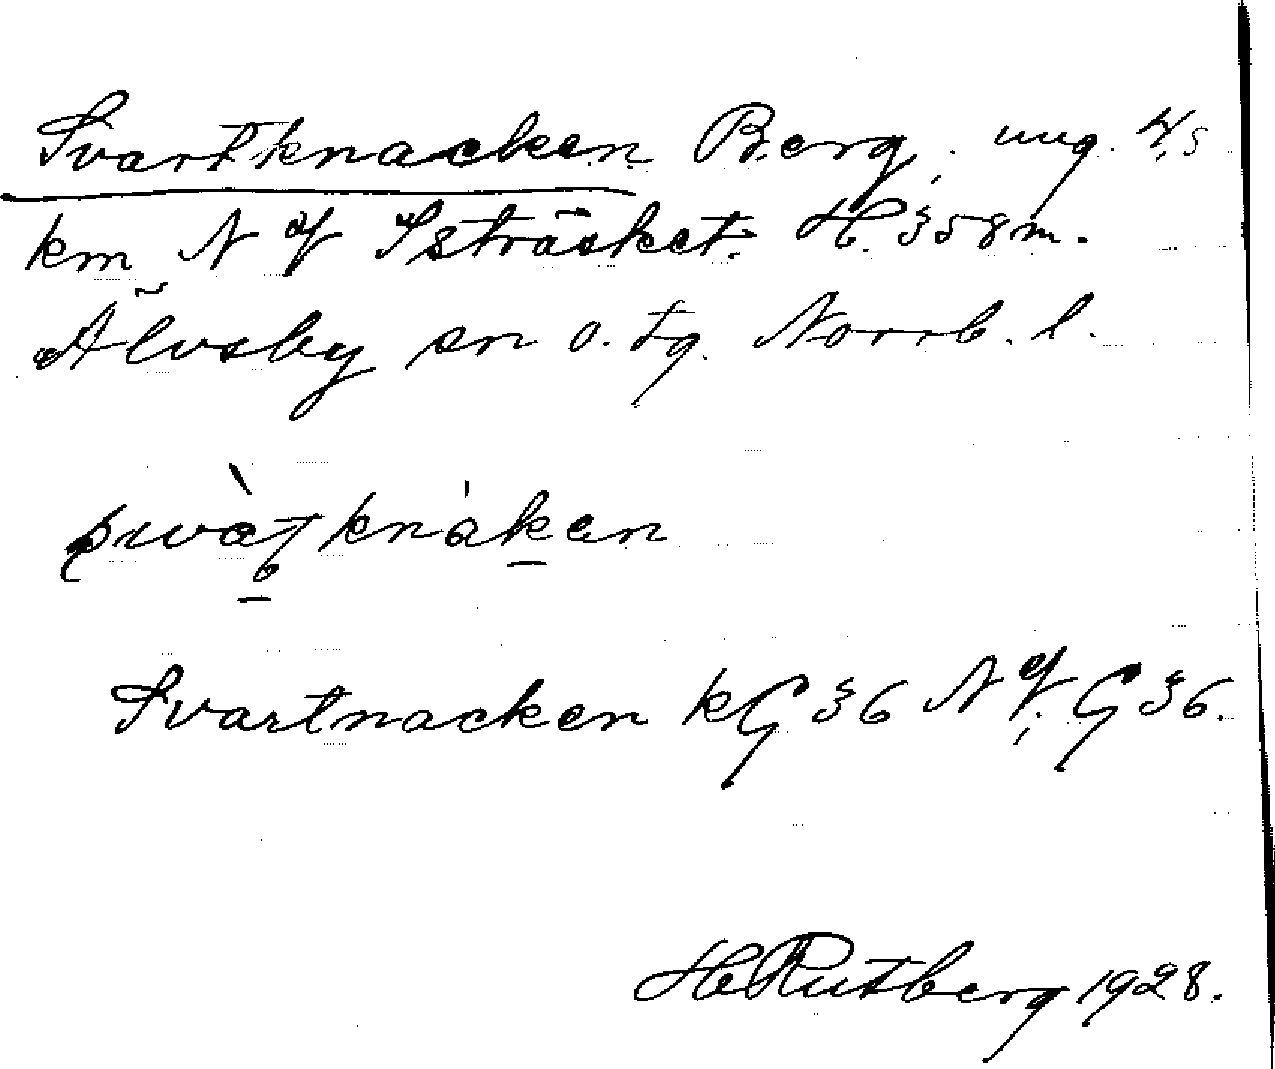 Svartknacken Berg, ung. 4,5
km N of Isträsket. H. 358 m.
Älvsby sn o. tg. Norrb. l.
Svartnacken kG 36 N of, G 36.
H Rutberg 1928.